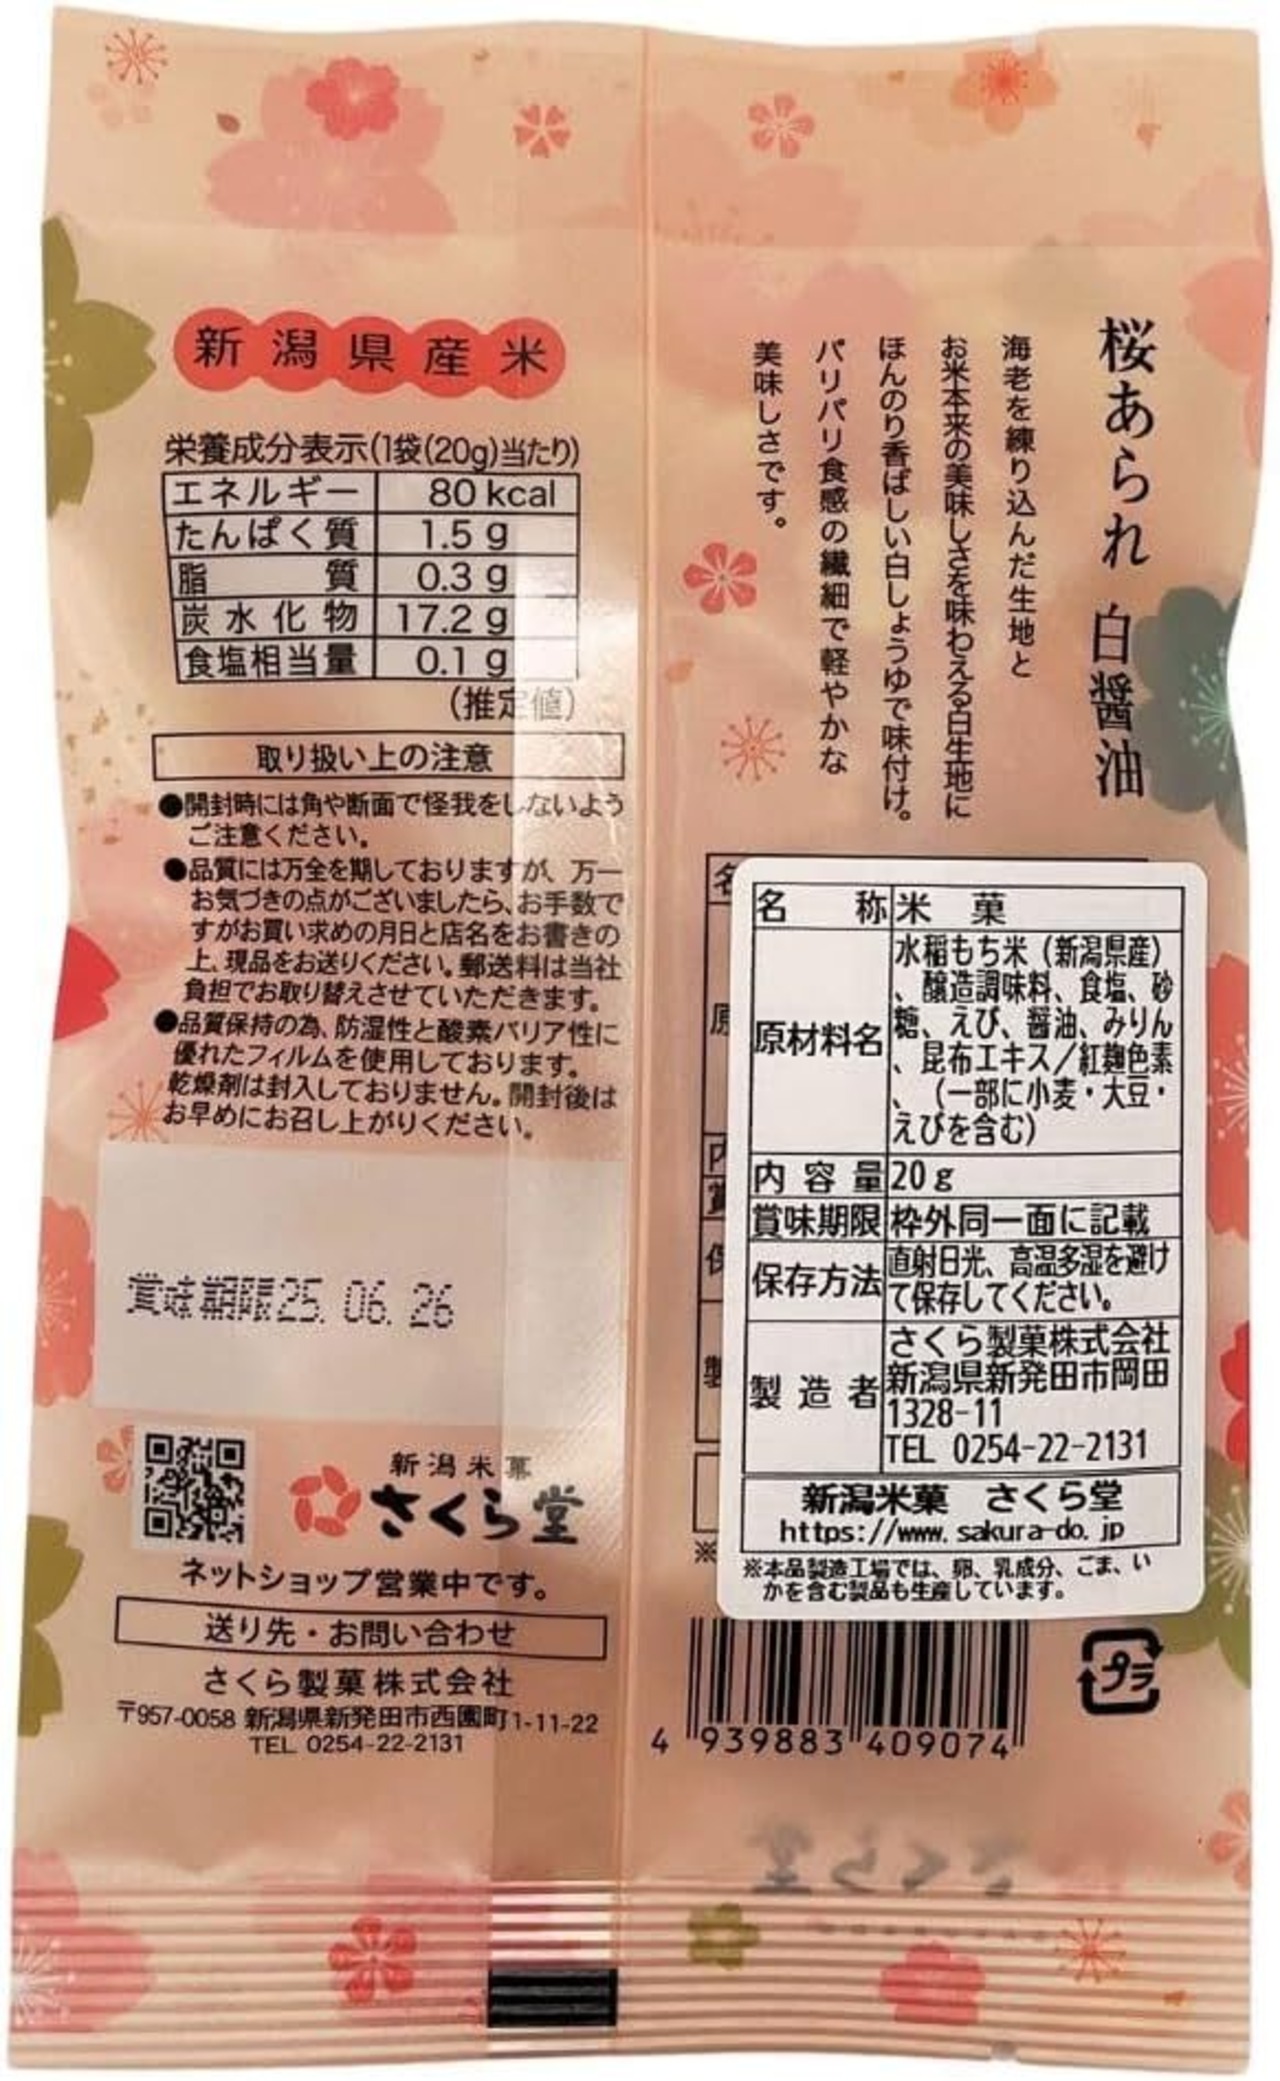 桜あられ 白醤油
海老を練り込んだ生地と
お米本来の美味しさを味わえる白生地に
ほんのり香ばしい白しょうゆで味付け。
パリパリ食感の繊細で軽やかな
美味しさです。
新潟県産米
栄養成分表示(1袋(20g)当たり)
エネルギー 80 kcal
たんぱく質 1.5 g
脂質 0.3 g
炭水化物 17.2 g
食塩相当量 0.1 g
(推定値)
取り扱い上の注意
●開封時には角や断面で怪我をしないよう
ご注意ください。
●品質には万全を期しておりますが、万一
お気づきの点がございましたら、お手数で
すがお買い求めの月日と店名をお書きの
上、現品をお送りください。郵送料は当社
負担でお取り替えさせていただきます。
●品質保持の為、防湿性と酸素バリア性に
優れたフィルムを使用しております。
乾燥剤は封入しておりません。開封後は
お早めにお召し上がりください。
賞味期限25.06.26
新潟米菓
さくら堂
ネットショップ営業中です。
送り先・お問い合わせ
さくら製菓株式会社
〒957-0058 新潟県新発田市西園町1-11-22
TEL 0254-22-2131
名称 米菓
原材料名 水稲もち米(新潟県産)
、醸造調味料、食塩、砂
糖、えび、醤油、みりん
、昆布エキス/紅麹色素
、(一部に小麦・大豆・
えびを含む)
内容量 20g
賞味期限 枠外同一面に記載
保存方法 直射日光、高温多湿を避け
て保存してください。
製造者 さくら製菓株式会社
新潟県新発田市岡田
1328-11
TEL 0254-22-2131
新潟米菓 さくら堂
https://www.sakura-do.jp
※本品製造工場では、卵、乳成分、ごま、い
かを含む製品も生産しています。
プラ
4 939883 409074